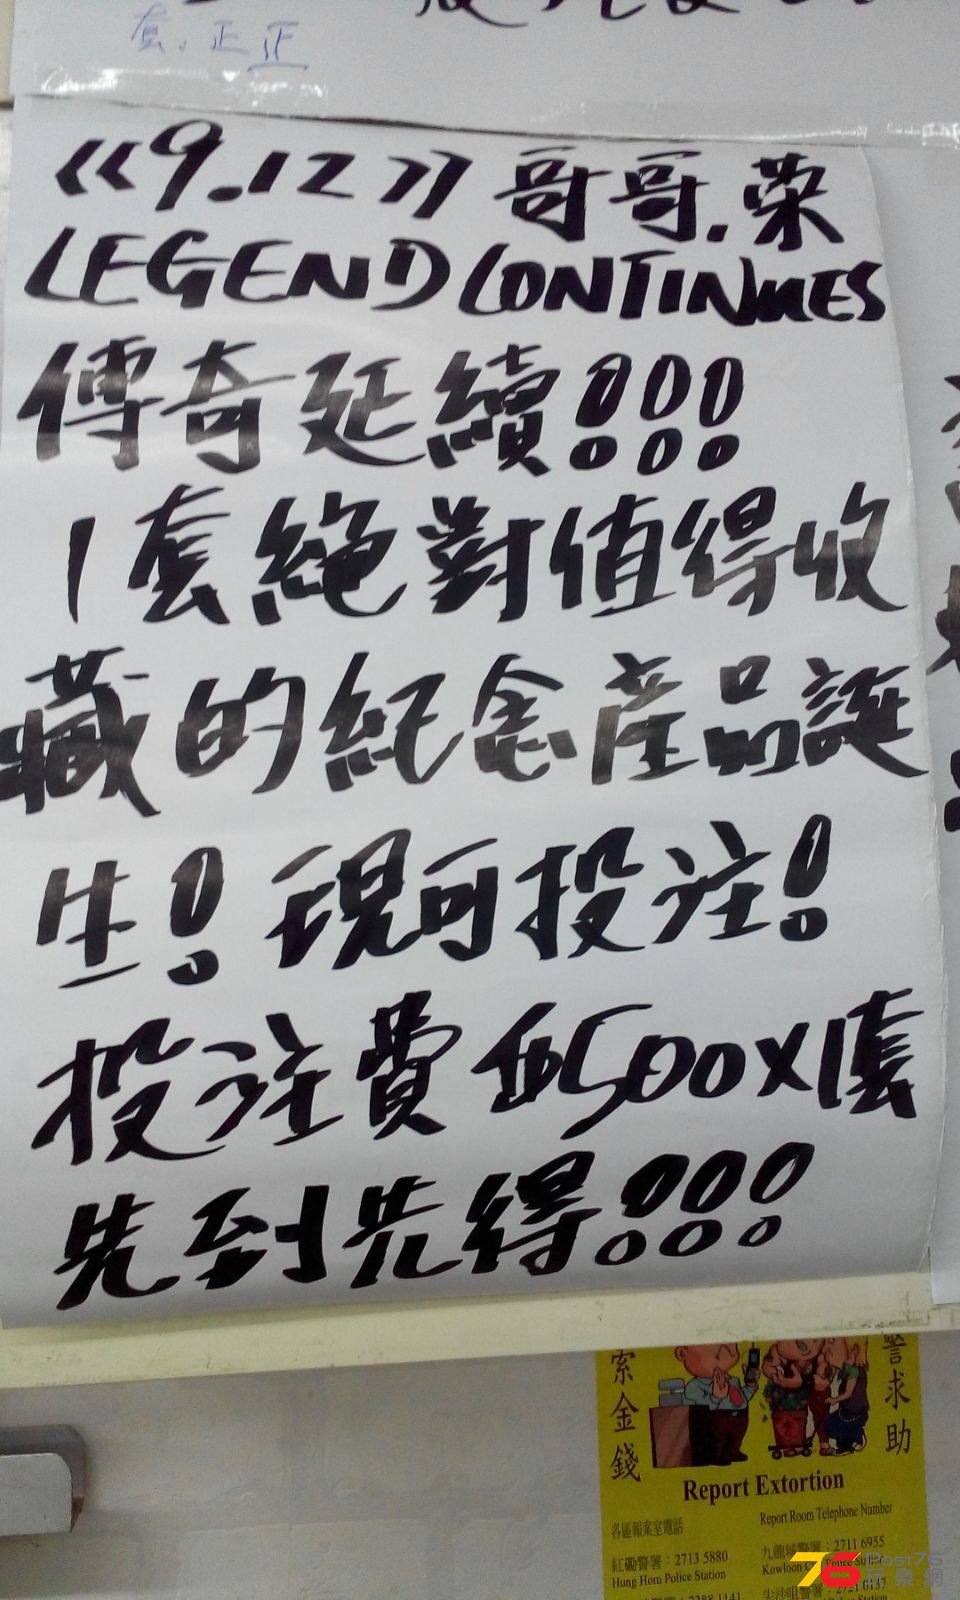 正正
《9.12》哥哥.荣
LEGEND CONTINUES
傳奇延續!!!
1套絕對值得收
藏的紀念產品誕
生!現可投注!
投注費$500X1套
先到先得!!!
索金錢
警求助
Report Extortion
各區報案室電話
Report Room Telephone Number
紅磡警署：2713 5880
Hung Hom Police Station
九龍城警署：2711 6955
尖沙咀警署：2721 0137
2388 1141
76 Post76
玩樂網